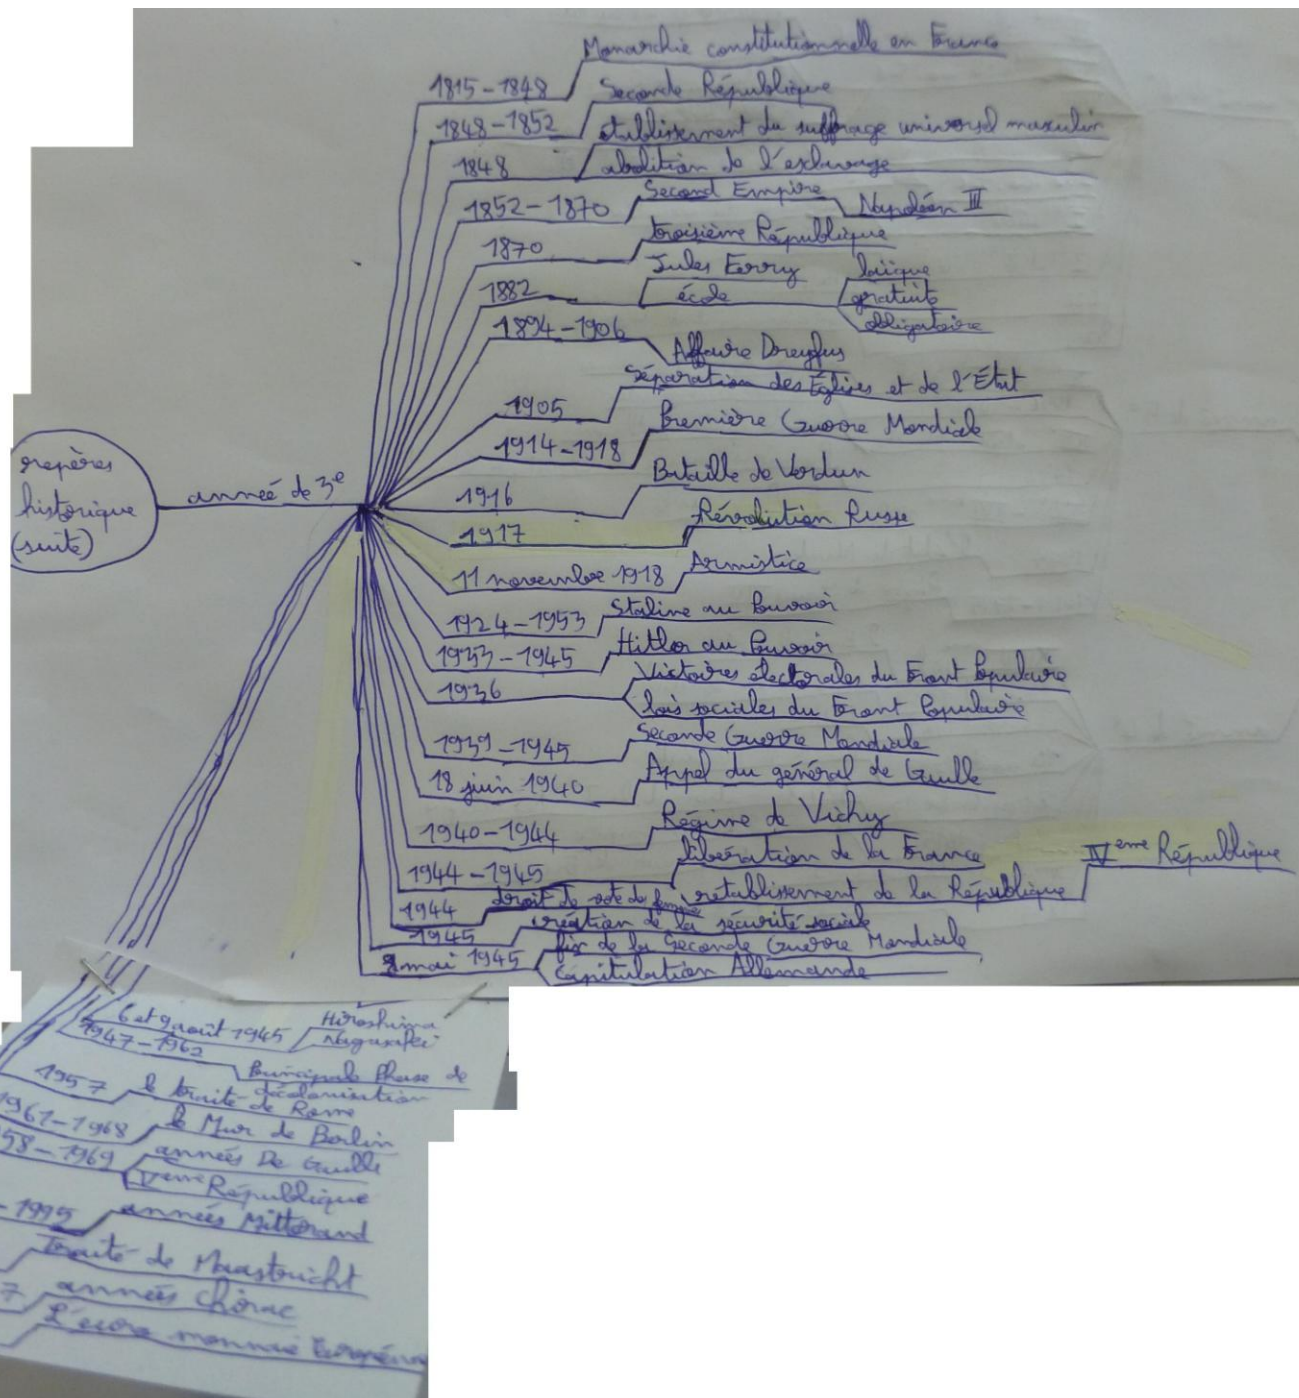 repères
historique
(suite)
année de 3e
1815-1848 Monarchie constitutionnelle en France
1848-1852 Seconde République
1848 établissement du suffrage universel masculin
abolition de l'esclavage
1852-1870 Second Empire Napoléon III
1870 troisième République
1882 Jules Ferry
école laïque
gratuit
obligatoire
1894-1906 Affaire Dreyfus
1905 Séparation des Églises et de l'État
1914-1918 Première Guerre Mondiale
1916 Bataille de Verdun
1917 Révolution Russe
11 novembre 1918 Armistice
1924-1953 Staline au Pouvoir
1933-1945 Hitler au Pouvoir
1936 Victoires électorales du Front Populaire
lois sociales du Front Populaire
1939-1945 Seconde Guerre Mondiale
18 juin 1940 Appel du général de Gaulle
1940-1944 Régime de Vichy
1944-1945 libération de la France
retablissement de la République IVeme République
1944 droit de vote de femme
1945 création de la sécurité sociale
8 mai 1945 fin de la Seconde Guerre Mondiale
Capitulation Allemande
6 et 9 août 1945 Hiroshima
Nagasaki
1947-1962 Principale Phase de
décolonisation
1957 le traité de Rome
1961-1968 le Mur de Berlin
58-1969 années De Gaulle
Veme République
-1995 années Mitterand
Traité de Maastricht
7 années Chirac
L'euro monnaie Européenne